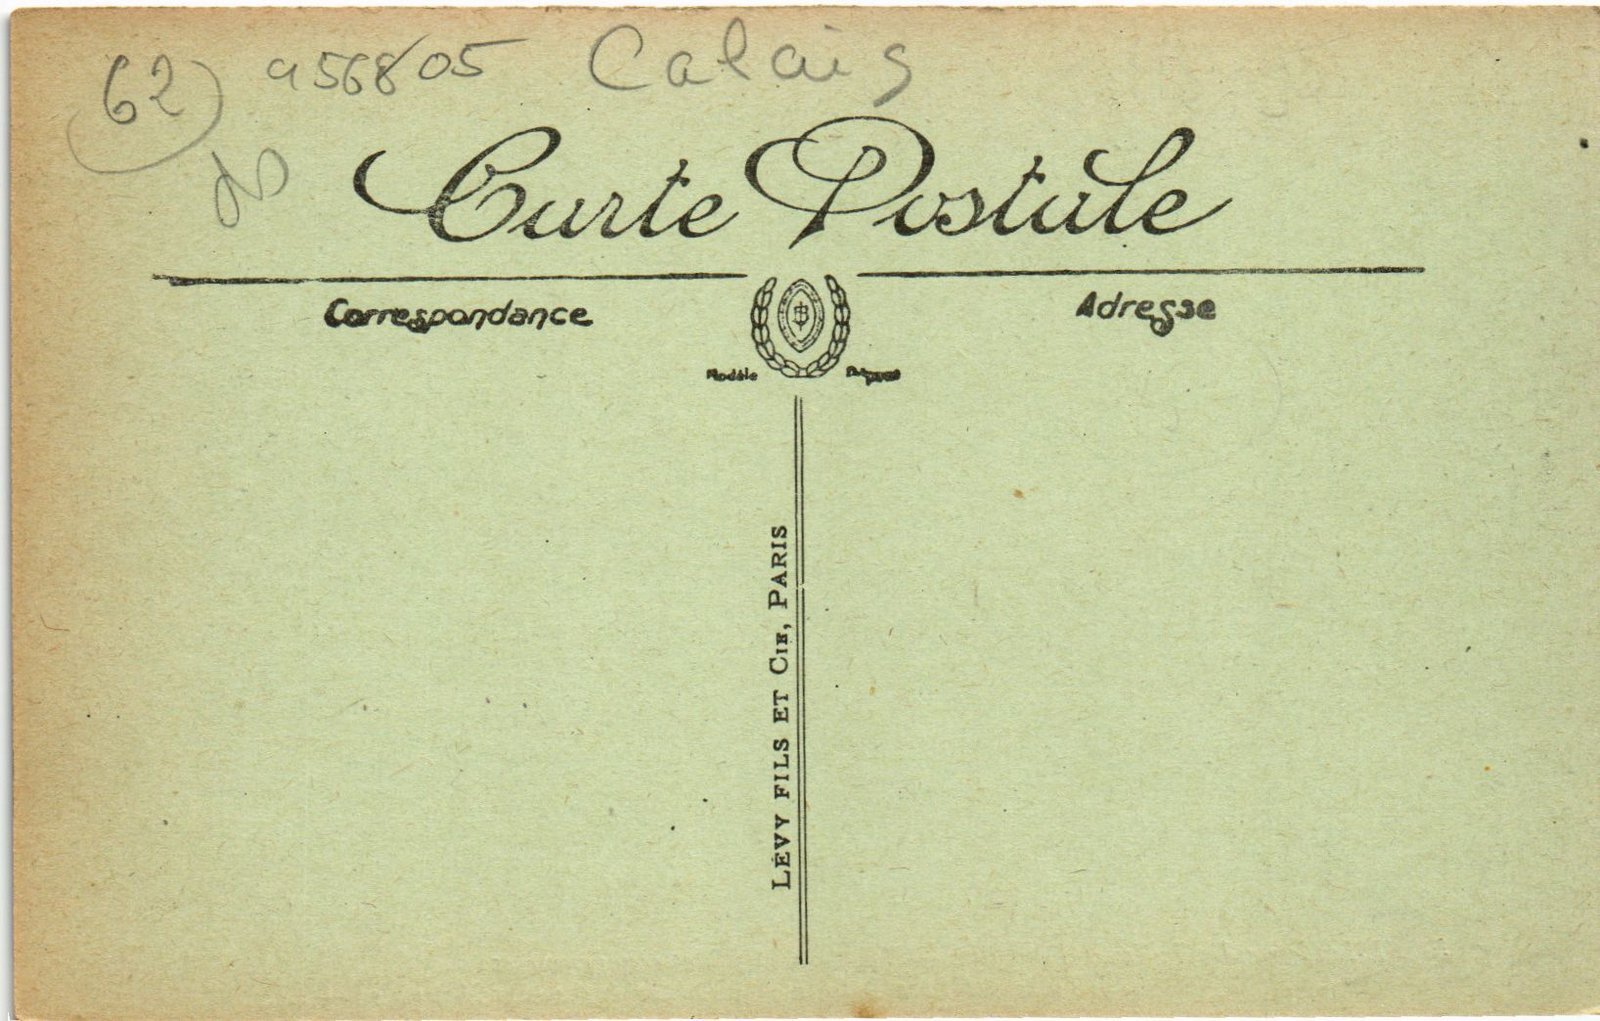 62) 956805 Calais
Carte Postale
Correspondance
Adresse
Modèle Déposé
LÉVY FILS ET CIE, PARIS